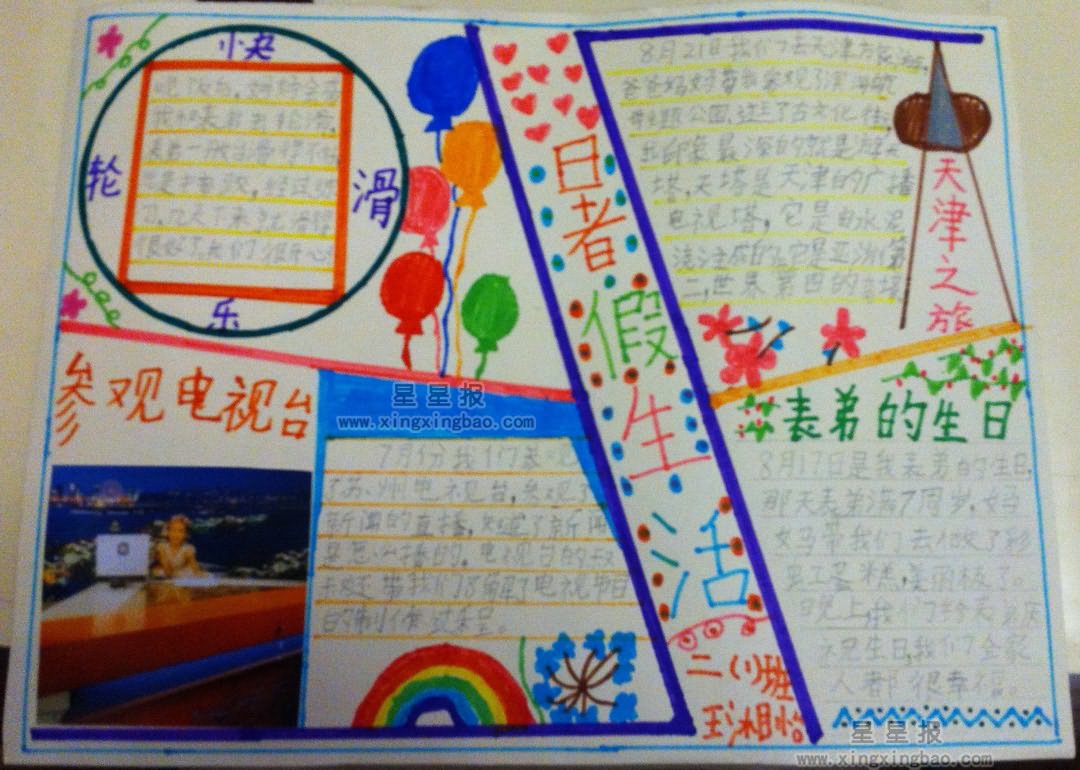 快
轮
滑
乐
晚饭后,妈妈会带
我和表弟去轮滑,
表弟一开始滑得不好
总是摔跤,经过练
习,几天下来
很好了,我们很开心
暑
假
生
活
二(1)班
王湘怡
8月21日我们去天津旅游,
爸爸妈妈带我参观了滨海航
母主题公园,逛了古文化街,
印象最深的就是
塔,天塔是天津的广播
电视塔,它是由水泥
浇注成的,它是亚洲第
二,世界第四的高塔
天津之旅
参观电视台
7月份我们参观
了苏州电视台,参观了
新闻的直播,知道了新闻
是怎么播的。电视台的叔
叔还带我们了解了电视节目
的制作过程。
表弟的生日
8月17日是我表弟的生日,
那天表弟满7周岁,妈
妈带我们去做了彩
虹蛋糕,美丽极了。
晚上,我们给表弟庆
祝生日,我们全家
人都很幸福。
星星报
www.xingxingbao.com
星星报
www.xingxingbao.com